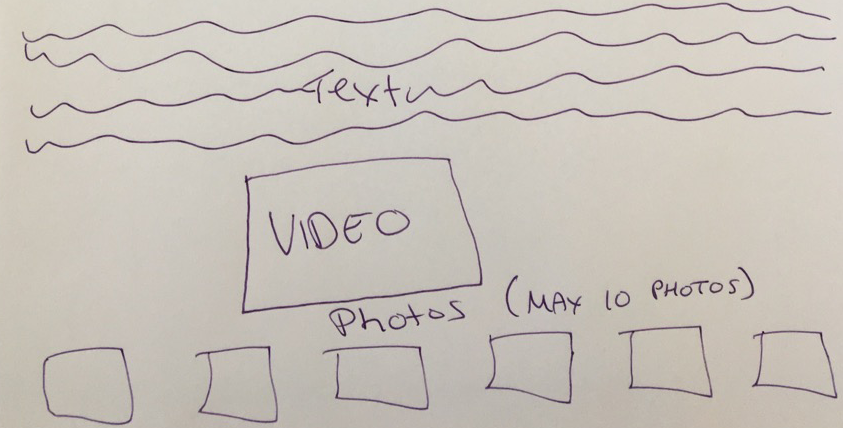 Text
VIDEO
Photos (MAX 10 PHOTOS)